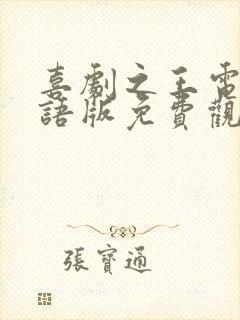 喜劇之王電
語版免費觀
張寶通